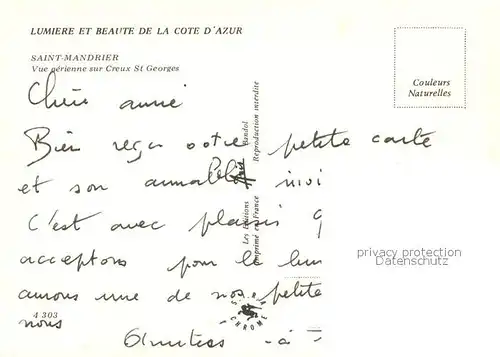 LUMIERE ET BEAUTE DE LA COTE D'AZUR
SAINT-MANDRIER
Vue aérienne sur Creux St Georges
Couleurs
Naturelles
Chère annie
Bien reçu votre petite carte
et son
C'est avec plaisir q
acceptons pour le lun
amons une de nos petite
nous
Amities - à
Les Editions
Bandol
Imprimé en France
Reproduction interdite
S.P.A.
CHROME
4 303
privacy protection
Datenschutz